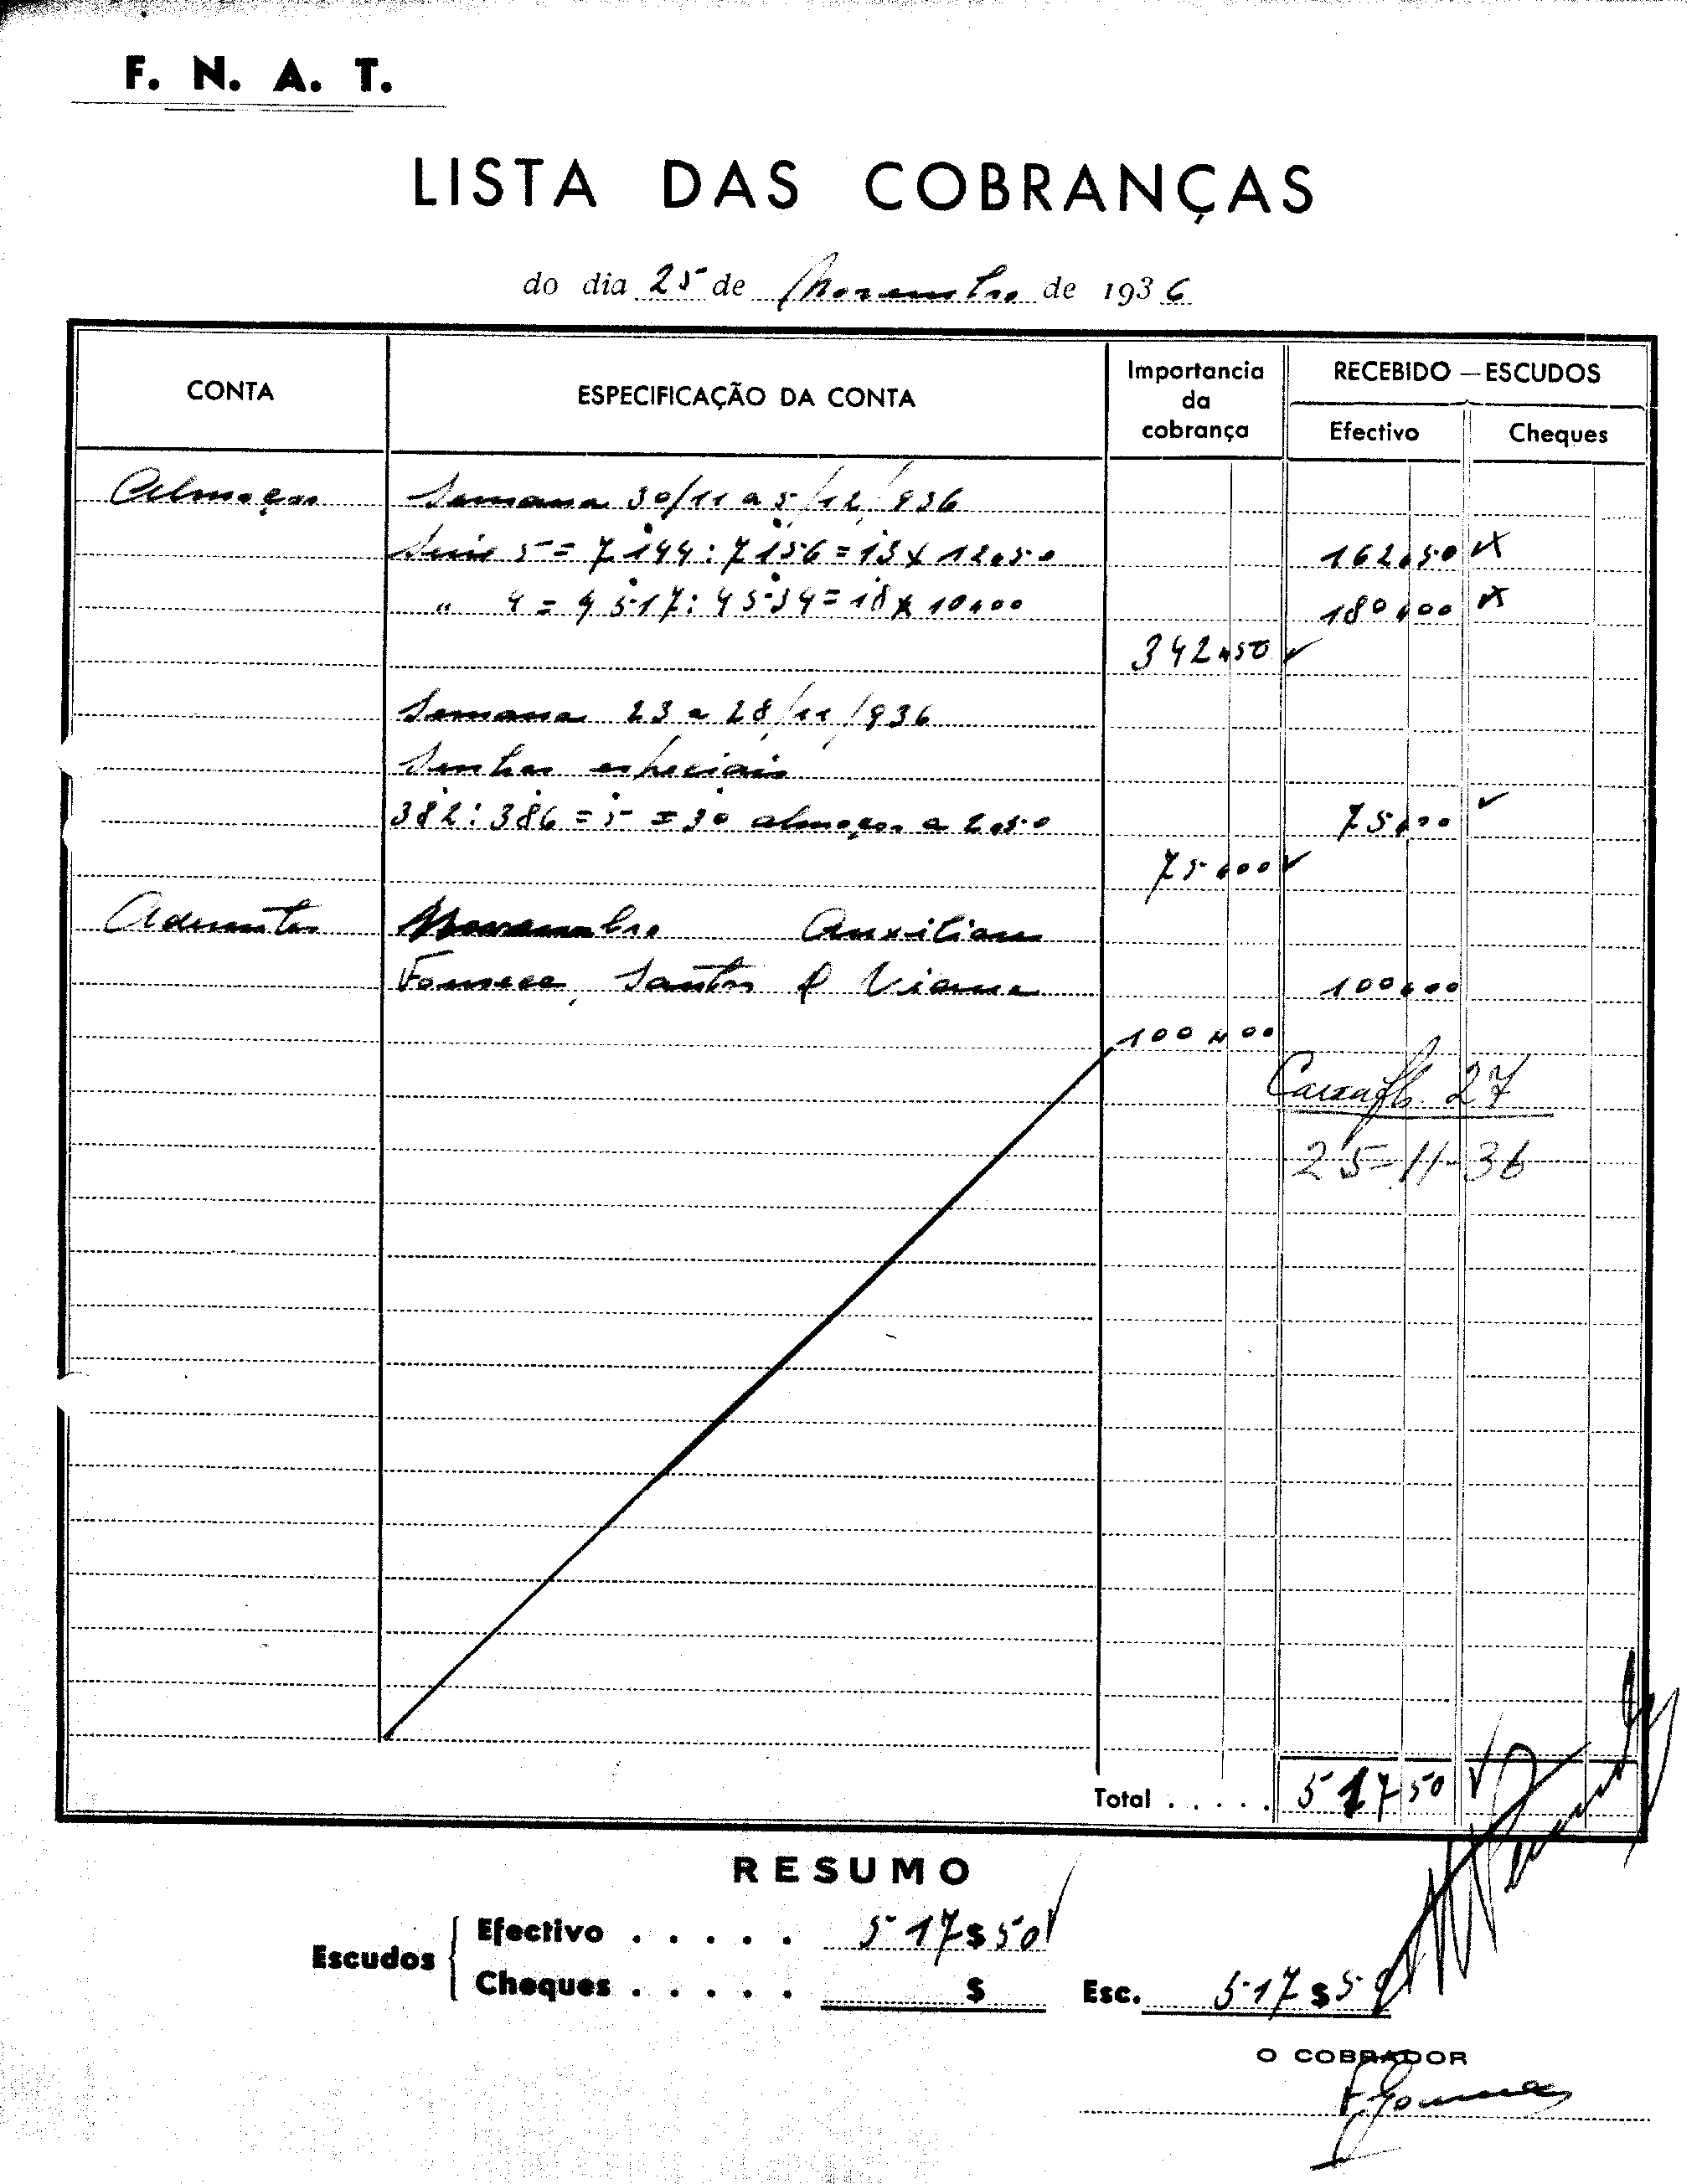 F. N. A. T.
LISTA DAS COBRANÇAS
do dia 25 de Novembro de 1936
CONTA
ESPECIFICAÇÃO DA CONTA
Importancia da cobrança
RECEBIDO — ESCUDOS
Efectivo
Cheques
Almoços Semana 30/11 a 5/12/936
Serie 5 = 7144 : 7156 = 13 x 12$50 162$50
" 4 = 4517 : 4534 = 18 x 10$00 180$00
342$50
Semana 23 a 28/11/936
Senhas especiais
382 : 386 = 5 = 30 almoços a 2$50 75$00
75$00
Aderentes Novembro Auxiliar
Fonseca, Santos & Viana 100$00
100$00
Caixa fl. 27
25-11-36
Total . . . . . 517 50
RESUMO
Escudos
Efectivo . . . . . 517$50
Cheques . . . . . $
Esc. 517$50
O COBRADOR